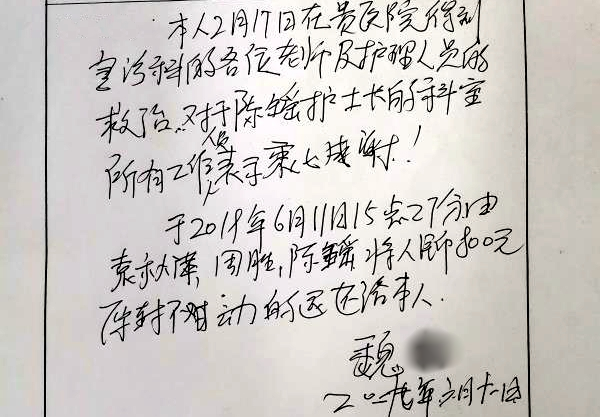 本人2月17日在贵医院得到
室污科的各位老师及护理人员的
救治，对于陈瑶护士长的科室
所有工作人员表示衷心感谢！
于2019年6月11日15点27分由
袁秋潆，周胜，陈瑶将人民币800元
原封不动的退还给本人.
魏
二〇一九年六月十一日